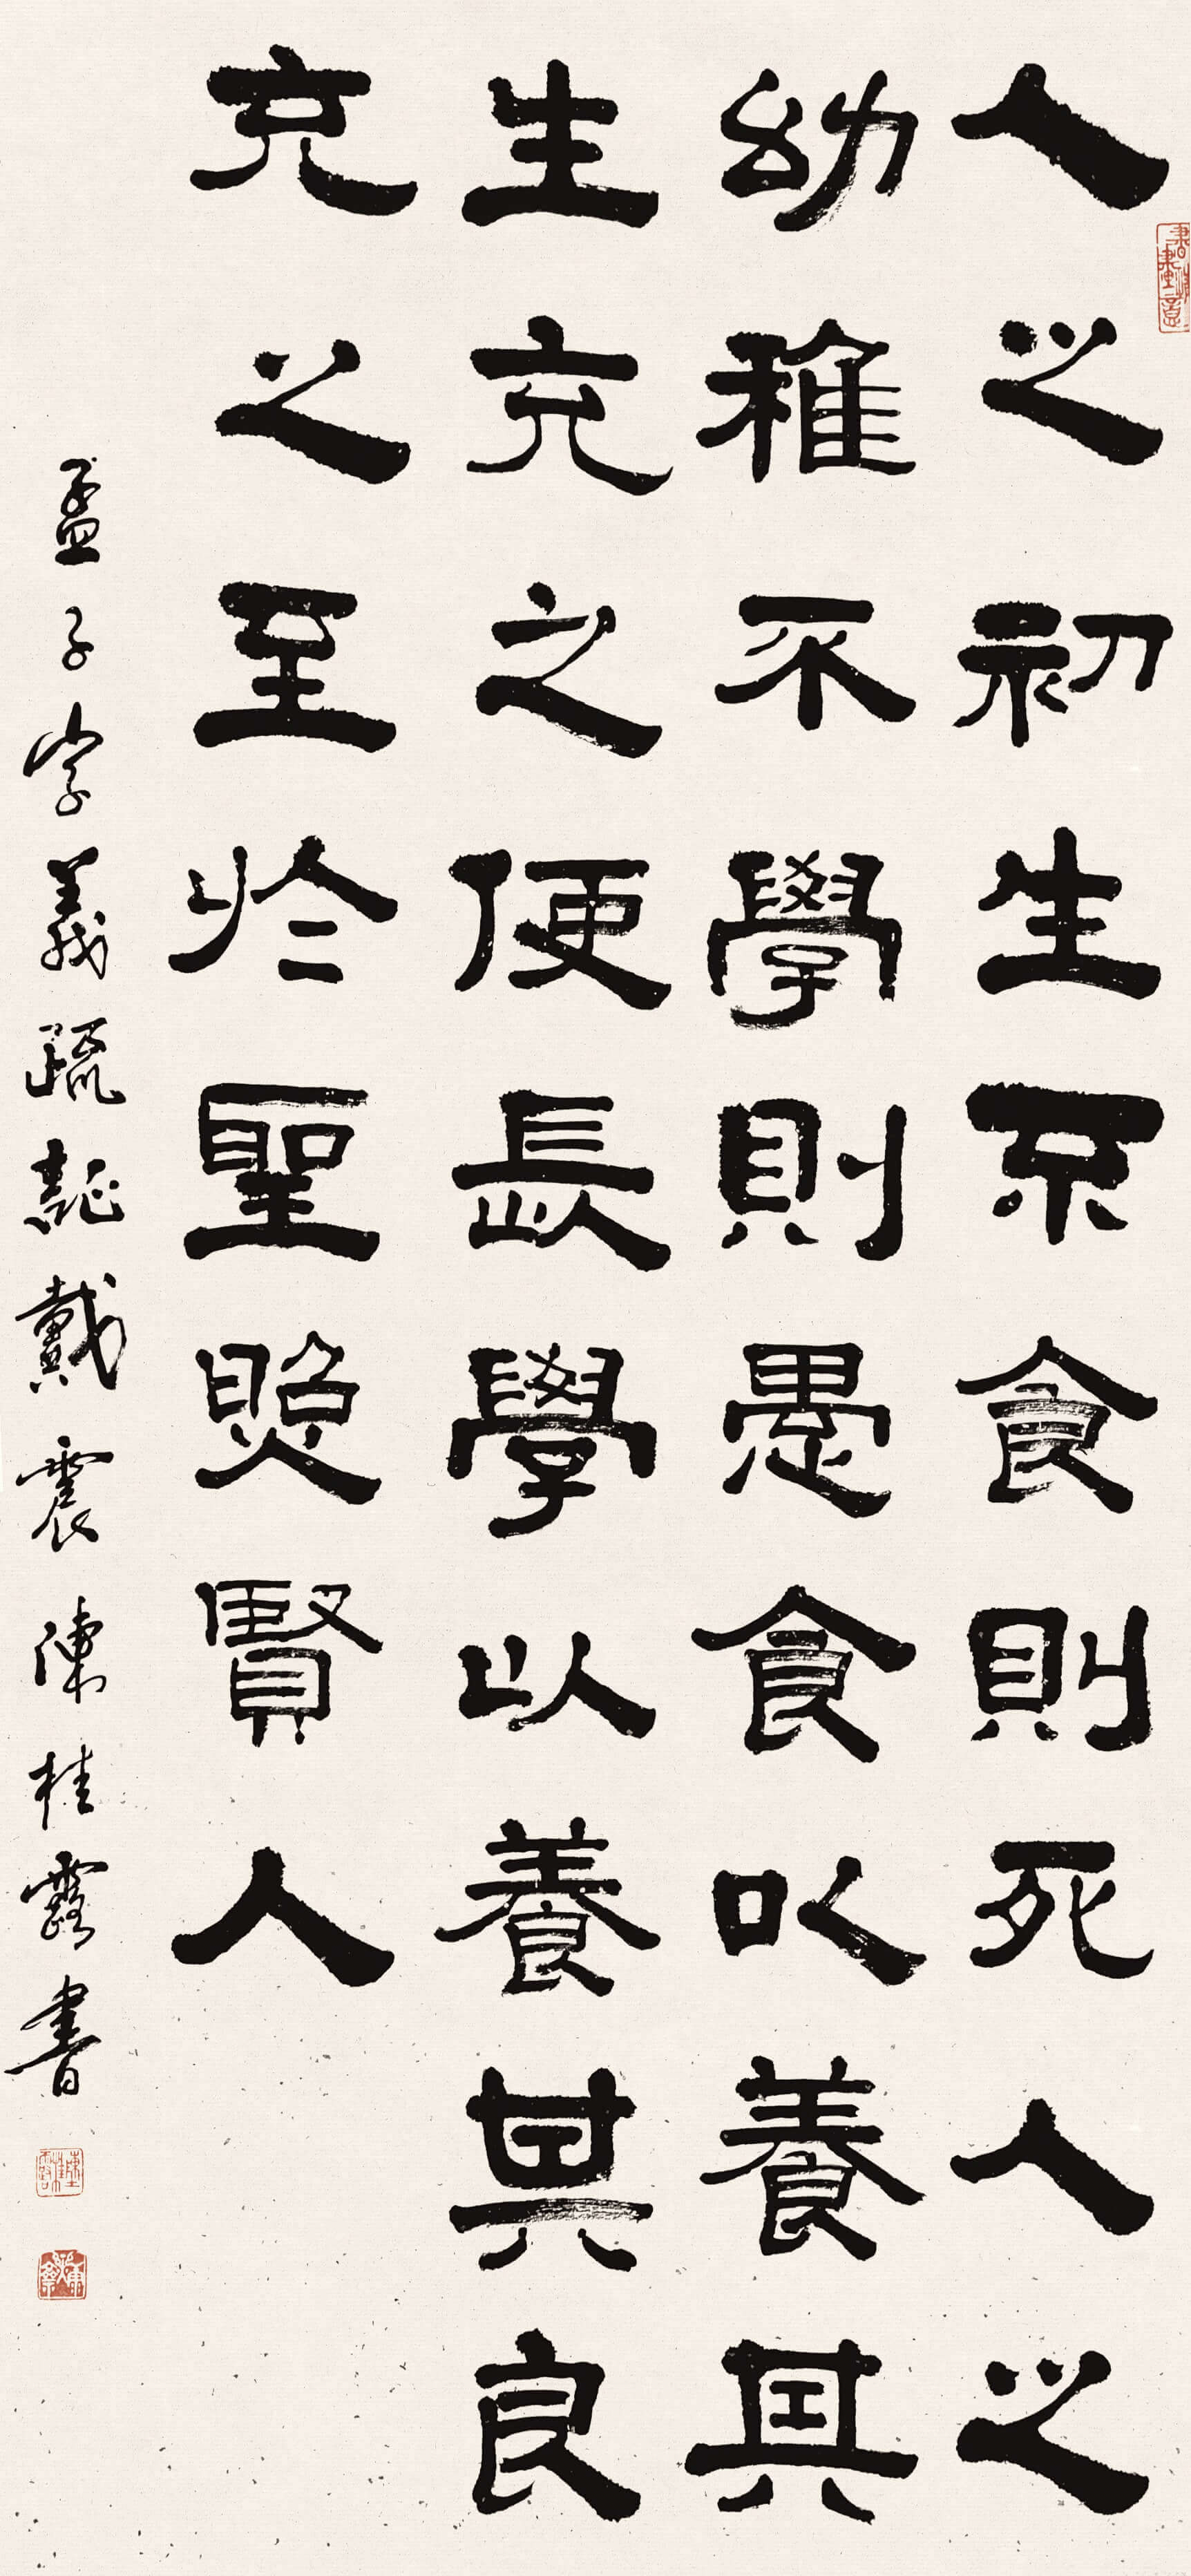 人之初生不食則死人之
幼稚不學則愚食以養其
生充之便長學以養其良
充之至於聖照賢人
孟子字義疏證戴震陳桂露書